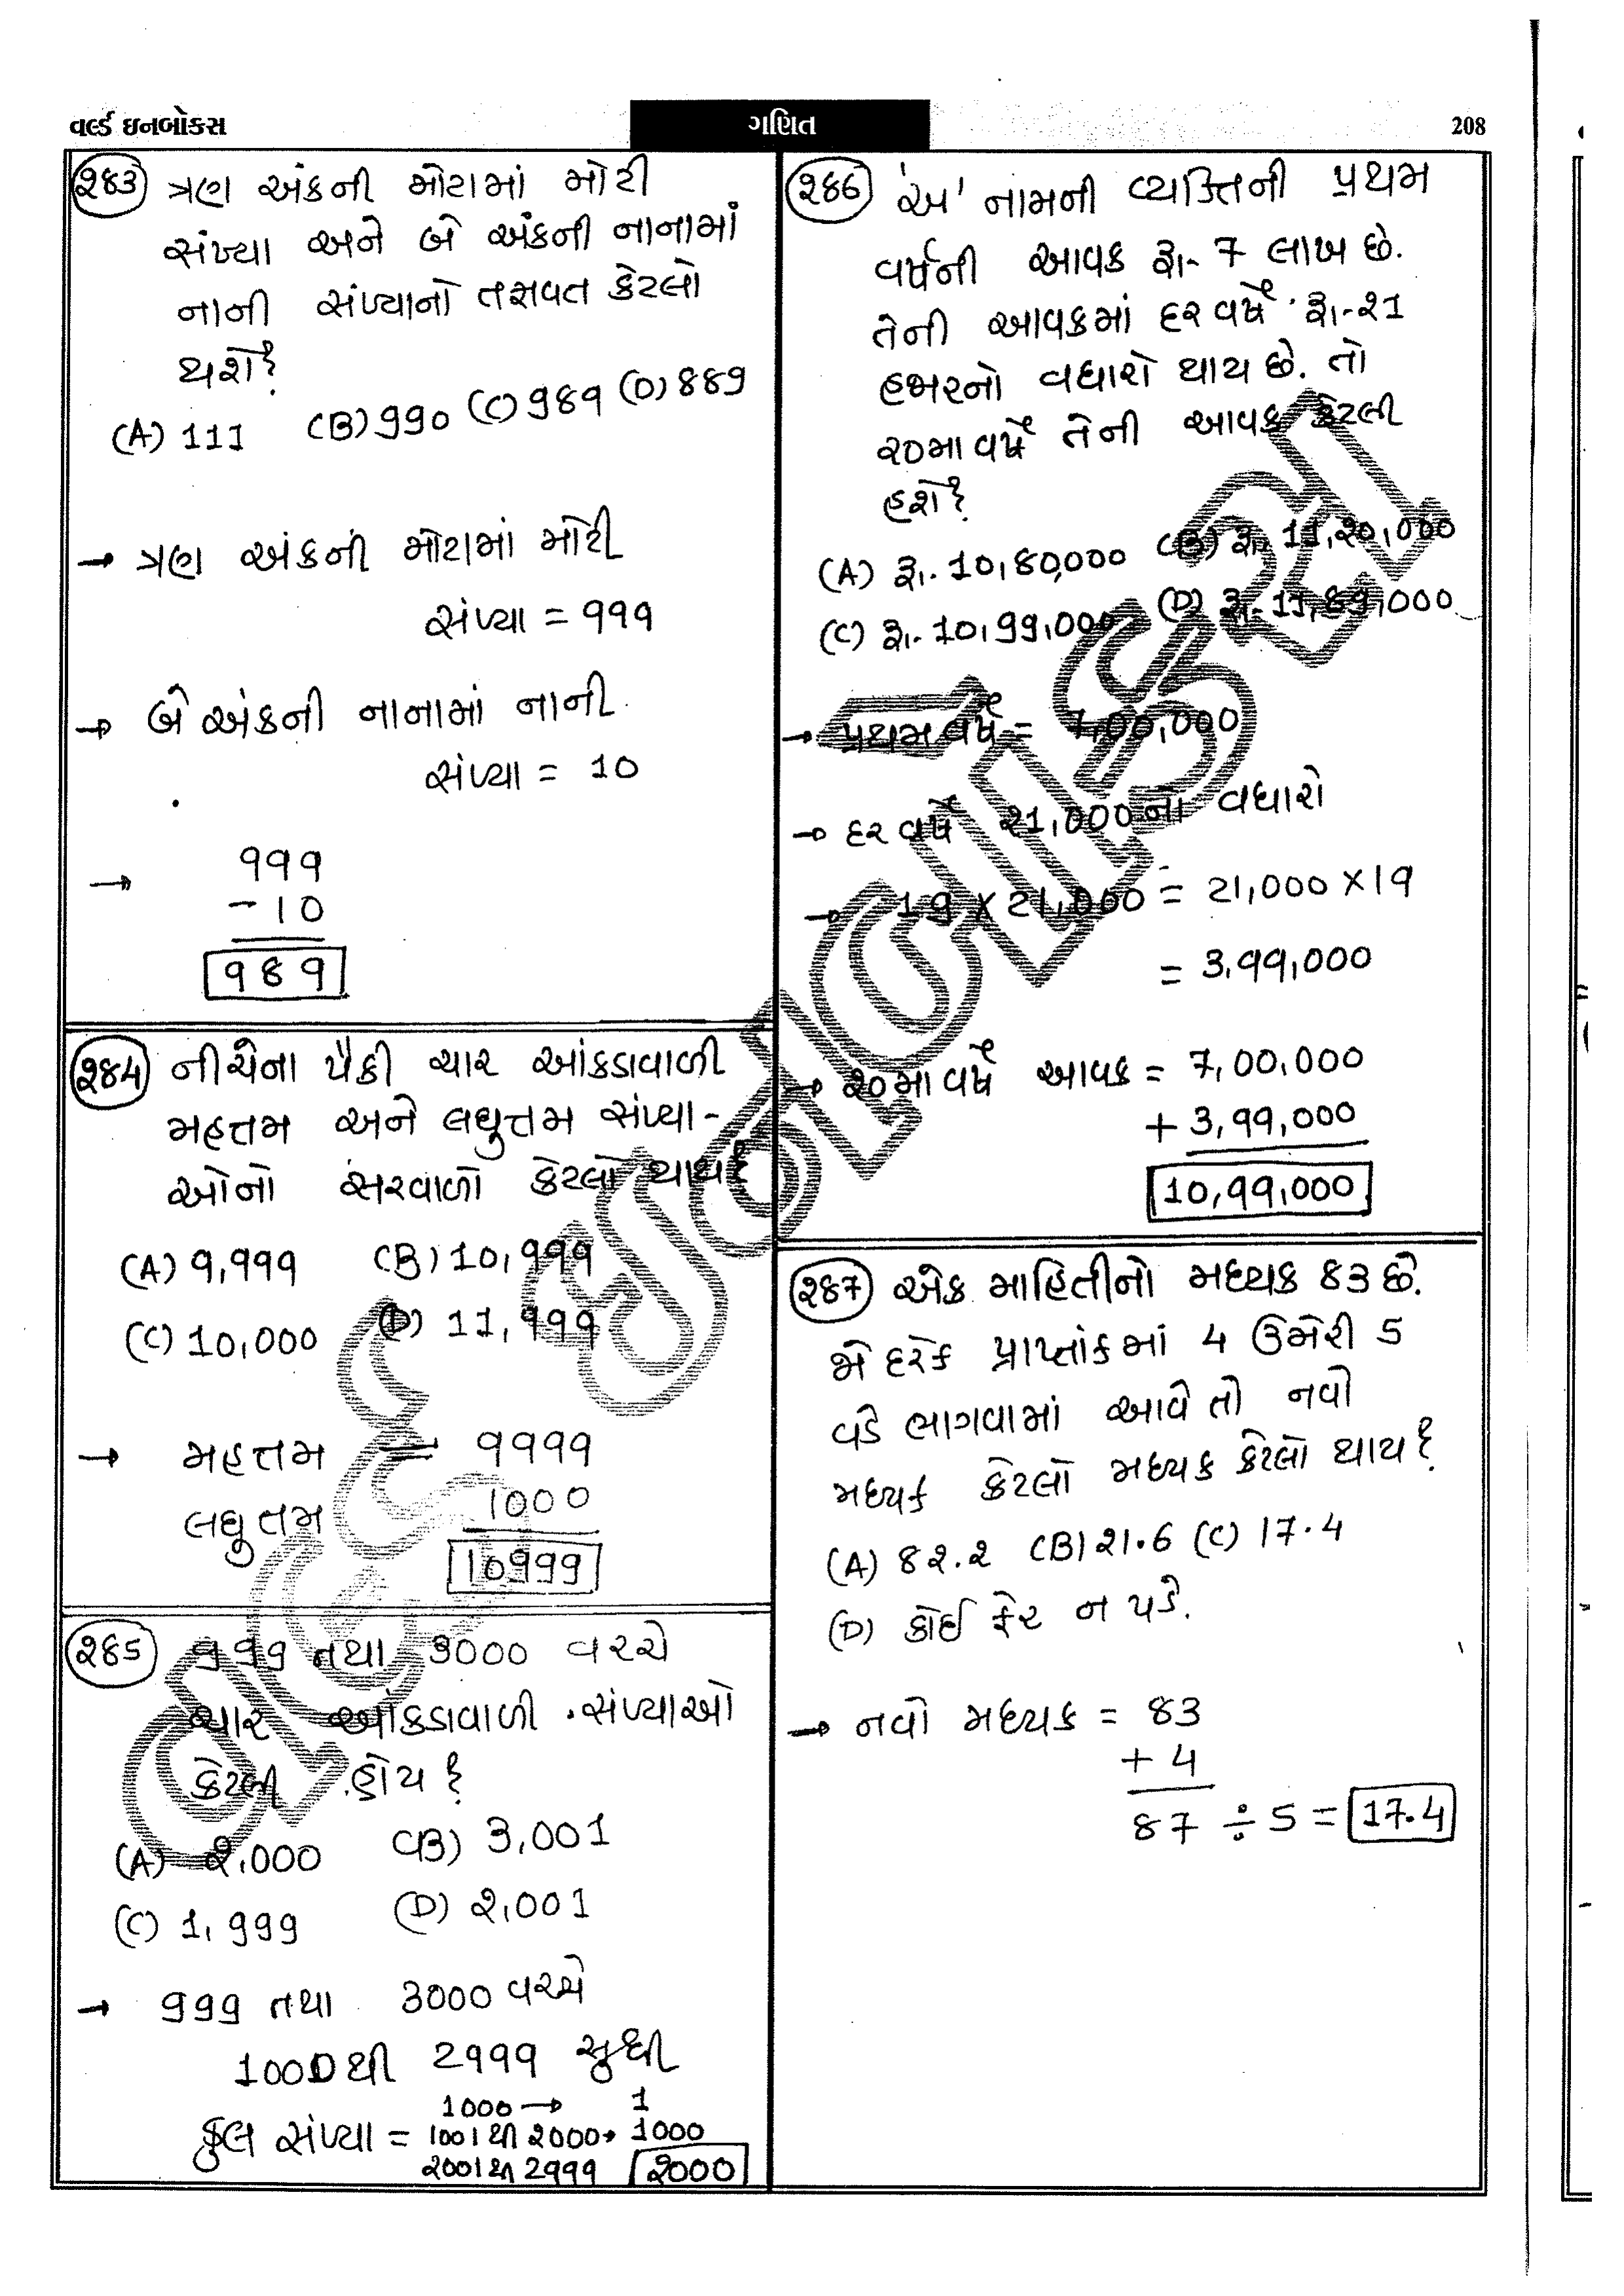 વર્લ્ડ ઇનબોક્સ
ગણિત
208
૨૪૩ ત્રણ અંકની મોટામાં મોટી
સંખ્યા અને બે અંકની નાનામાં
નાની સંખ્યાનો તફાવત કેટલો
થશે?
(A) 111 (B) 990 (C) 989 (D) 889
→ ત્રણ અંકની મોટામાં મોટી
સંખ્યા = 999
→ બે અંકની નાનામાં નાની
સંખ્યા = 10
→ 999
- 10
989
૨૪4 નીચેના પૈકી ચાર આંકડાવાળી
મહત્તમ અને લઘુત્તમ સંખ્યા-
ઓનો સરવાળો કેટલો થાય?
(A) 9,999 (B) 10,999
(C) 10,000 (D) 11,999
→ મહત્તમ = 9999
લઘુત્તમ 1000
10999
૨૪5 999 તથા 3000 વચ્ચે
ચાર આંકડાવાળી સંખ્યાઓ
કેટલી હોય?
(A) ૨,000 (B) 3,001
(C) 1,999 (D) ૨,001
→ 999 તથા 3000 વચ્ચે
1000થી 2999 સુધી
1000 → 1
કુલ સંખ્યા = 1001થી ૨000→ 1000
૨001થી 2999 ૨000
૨૪6 'અ' નામની વ્યક્તિની પ્રથમ
વર્ષની આવક રૂા.- 7 લાખ છે.
તેની આવકમાં દર વર્ષે રૂા.-૨1
હજારનો વધારો થાય છે. તો
૨0મા વર્ષે તેની આવક કેટલી
હશે?
(A) રૂા.- 10,80,000 (B) રૂા. 11,૨0,000
(C) રૂા.- 10,99,000 (D) રૂા.- 11,89,000
→ પ્રથમ વર્ષે = 7,00,000
→ દર વર્ષે ૨1,000નો વધારો
→ 19 × 21,000 = 21,000 × 19
= 3,99,000
→ ૨0મા વર્ષે આવક = 7,00,000
+ 3,99,000
10,99,000
૨૪7 એક માહિતીનો મધ્યક 83 છે.
જો દરેક પ્રાપ્તાંકમાં 4 ઉમેરી 5
વડે ભાગવામાં આવે તો નવો
મધ્યક કેટલો મધ્યક કેટલો થાય?
(A) 8૨.૨ (B) ૨1.6 (C) 17.4
(D) કોઈ ફેર ન પડે.
→ નવો મધ્યક = 83
+ 4
87 ÷ 5 = 17.4